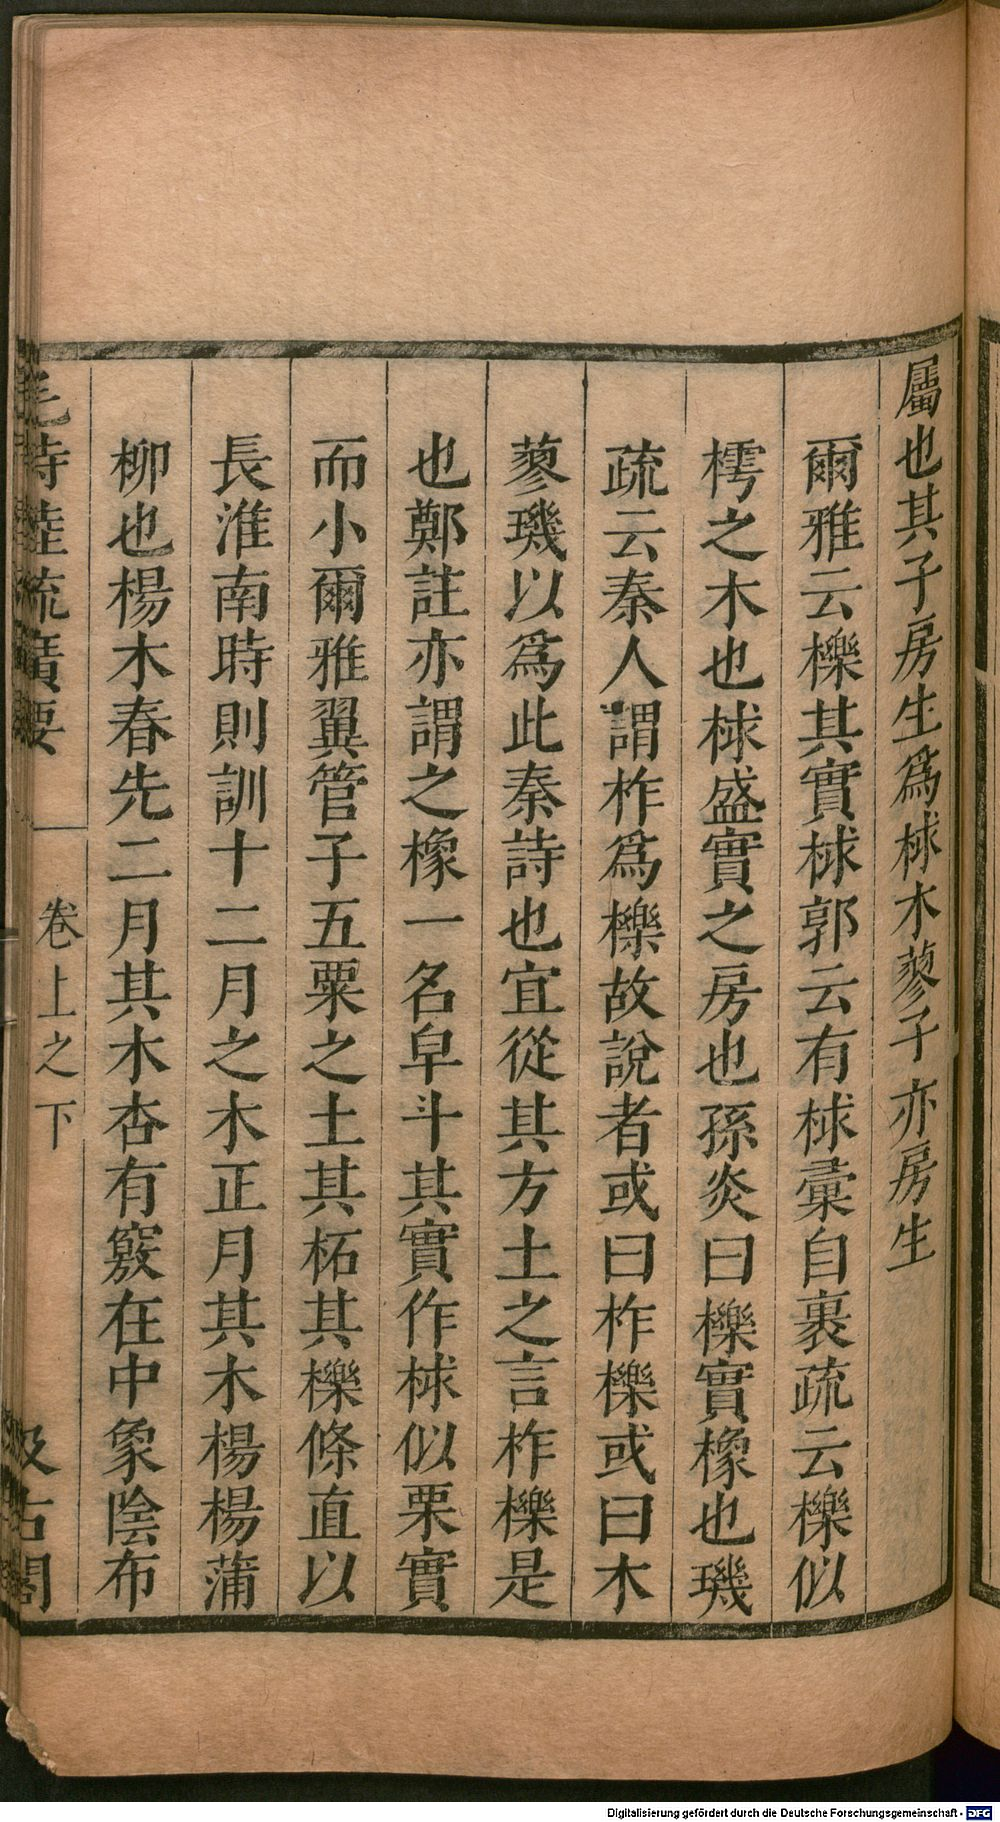 屬也其子房生爲梂木蓼子亦房生
爾雅云櫟其實梂郭云有梂彙自裹疏云櫟似
樗之木也梂盛實之房也孫炎曰櫟實橡也璣
疏云秦人謂柞爲櫟故說者或曰柞櫟或曰木
蓼璣以爲此秦詩也宜從其方土之言柞櫟是
也鄭註亦謂之橡一名皁斗其實作梂似栗實
而小爾雅翼管子五粟之土其柘其櫟條直以
長淮南時則訓十二月之木正月其木楊楊蒲
柳也楊木春先二月其木杏有竅在中象陰布
毛詩陸疏廣要
卷上之下
汲古閣
Digitalisierung gefördert durch die Deutsche Forschungsgemeinschaft - DFG